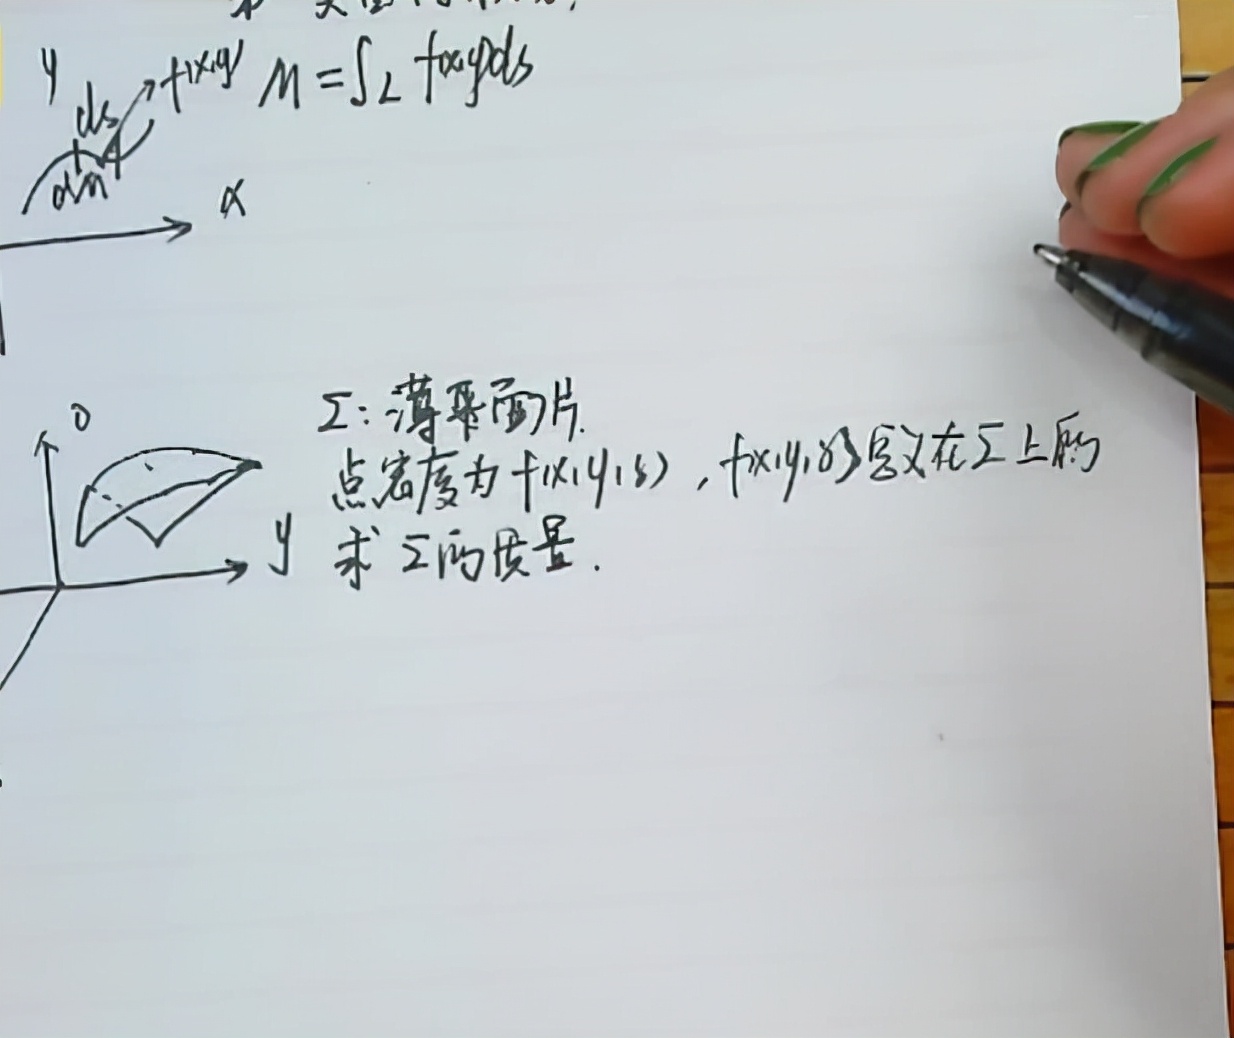 y
ds
f(x,y)
M=∫L f(x,y)ds
dm
x
Σ:薄曲面片.
点密度为f(x,y,z),f(x,y,z)定义在Σ上的
求Σ的质量.
0
y